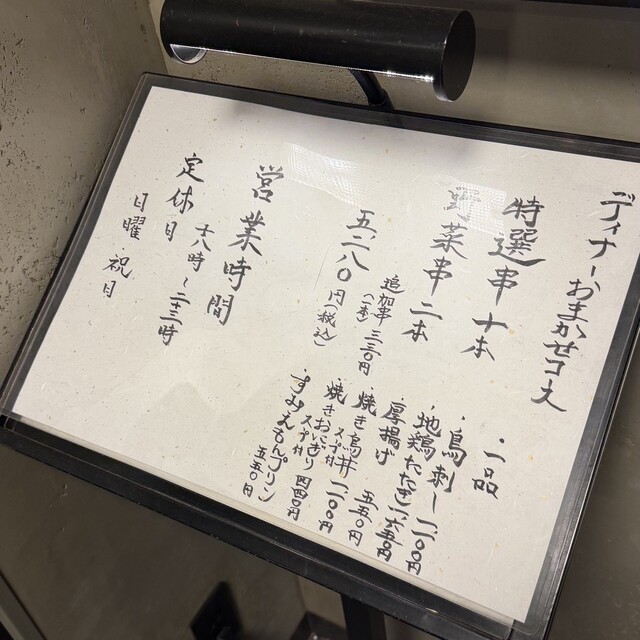 ディナーおまかせコース
特選串 十本
野菜串 二本
五.二八〇円(税込)
追加串 三三〇円
(一本)
・一品
・鳥刺し 一一〇〇円
・地鶏たたき 一六五〇円
・厚揚げ 五五〇円
・焼き鳥丼 一一〇〇円
スープ付
・焼きおにぎり 四四〇円
スープ付
・すみえもんプリン 五五〇円
営業時間
十八時~二三時
定休日
日曜・祝日